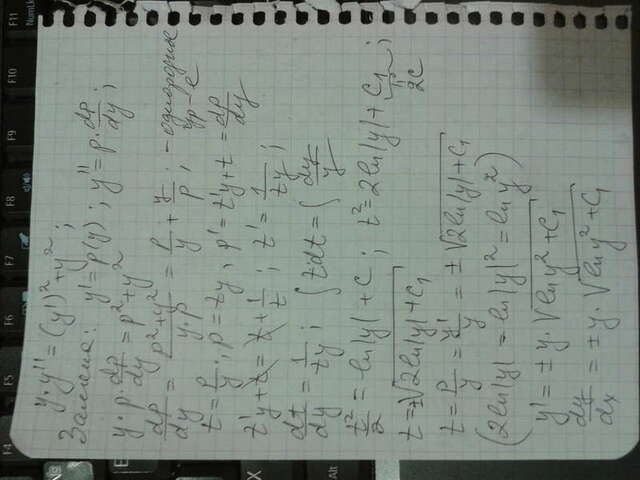 y·y'' = (y')² + y²;
Замена: y' = p(y); y'' = p·dp/dy;
y·p·dp/dy = p² + y²
dp/dy = (p² + y²)/(y·p) = p/y + y/p; - однородное ур-е
t = p/y; p = ty; p' = t'y + t = dp/dy
t'y + t = t + 1/t; t' = 1/(ty);
dt/dy = 1/(ty); ∫tdt = ∫dy/y
t²/2 = ln|y| + C; t² = 2ln|y| + C₁;
2C
t = ±√(2ln|y| + C₁)
t = p/y = y'/y = ±√(2ln|y| + C₁)
(2ln|y| = ln|y|² = ln y²)
y' = ±y·√(ln y² + C₁)
dy/dx = ±y·√(ln y² + C₁)
F4
F5
F6
F7
F8
F9
F10
F11
NumL
X
Alt